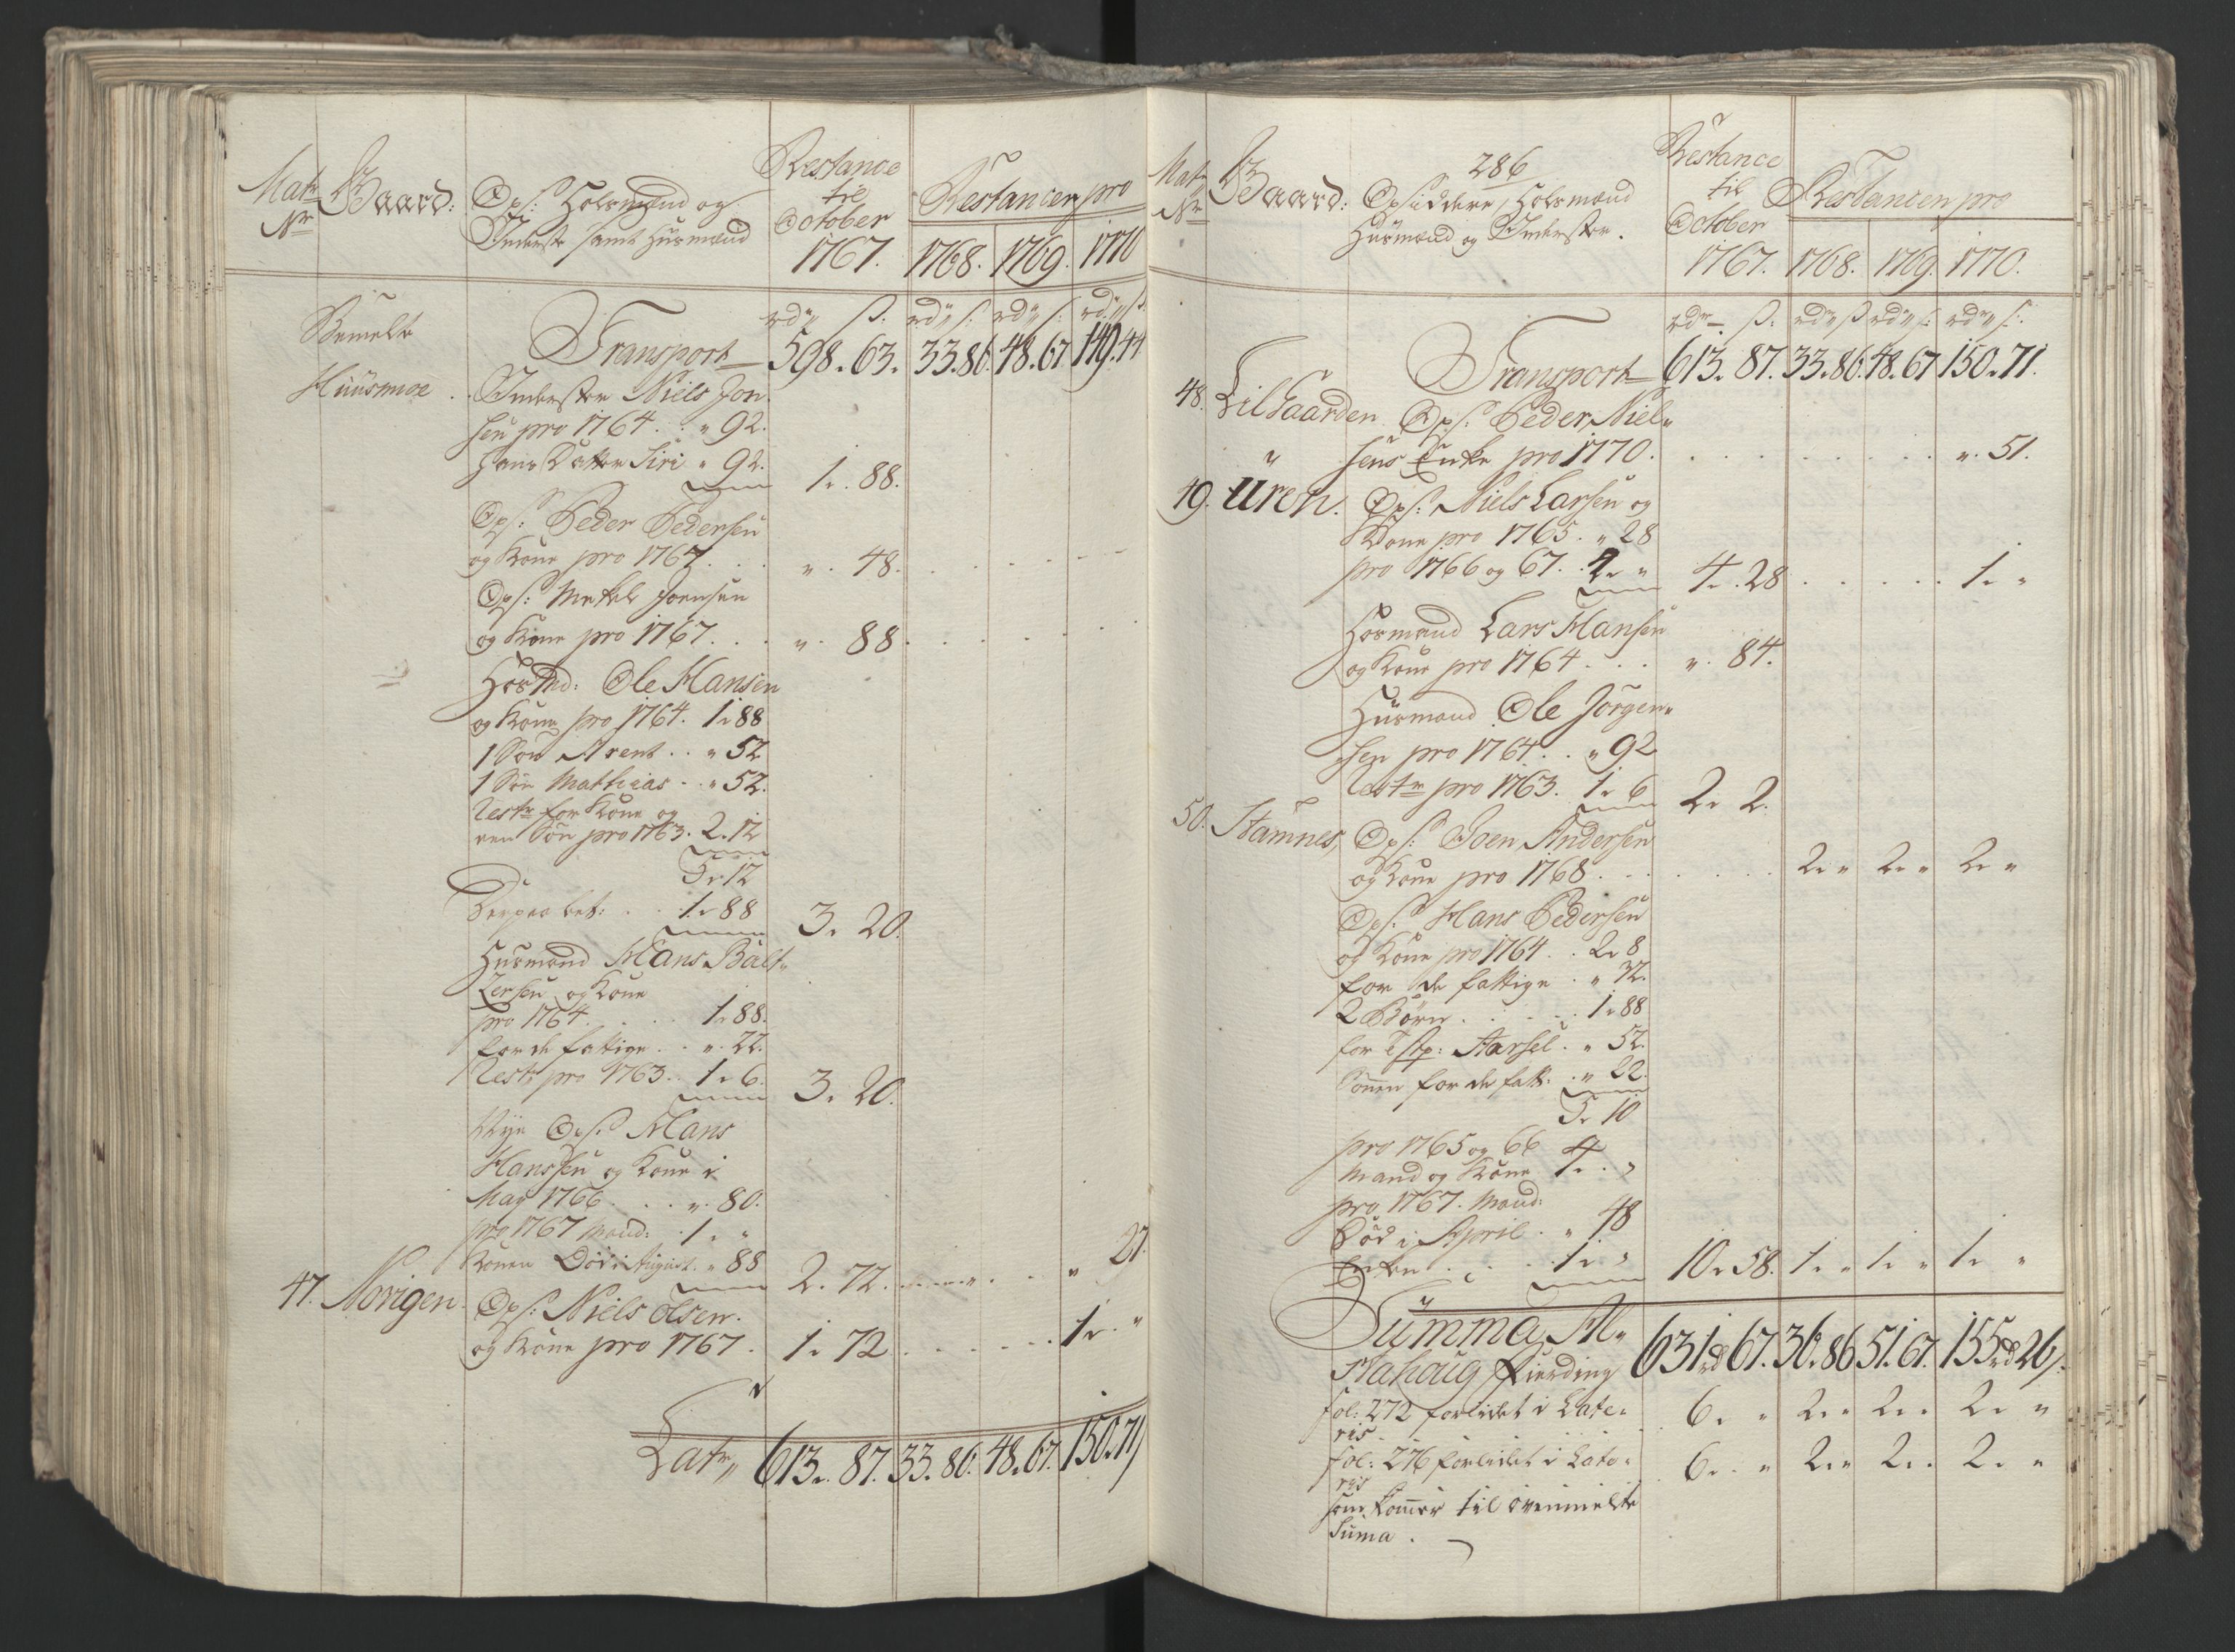 Mat Nr
Gaard:
Ops: Holsmænd og
Inderste samt Huusmænd
Restance
til
October
1767.
Restancen pro
1768. 1769. 1770
rdr ß. rdr ß. rdr ß. rdr ß.
Bemelte
Transport 598. 63. 33. 86. 48. 67. 149. 44
Huusmoe. Inderster Niels Jon
sen pro 1764. . " 92.
hans Datter Siri " 92. 1. 88.
Ops: Peder Pedersen
og Kone pro 1767. . . ". 48.
Ops: Mekel Joensen
og Kone pro 1767. . . ". 88.
Ole Hansen
og Kone pro 1764. 1. 88
1 Søn Arent . . " 52
1 Søn Mathias . . " 52.
Rest for Kone og
een Søn pro 1763. 2. 12
5. 12
Derpaa bet: . . 1. 88 3. 20.
Husmand Hans Balt-
zersen og Kone
pro 1764. . . . 1. 88.
for de fattige . . ". 22.
Rest pro 1763. . 1. 6. 3. 20.
Nye Ops. Hans
Hansen og Kone i
May 1766. . . ". 80.
pro 1767 Mand: . 1. "
Konen Død i August. " 88 2. 72. " 27.
47. Norigen. Ops: Niels Olsen
og Kone pro 1767. 1. 72 . . . . . 1. "
Lat" 613. 87. 33. 86. 48. 67. 150. 71
286
Mat Nr
Gaard:
Opsiddere, Holsmænd
Husmænd og Inderster.
Restance
til
October
1767.
Restancen pro
1768. 1769. 1770.
rdr ß. rdr ß rdr ß. rdr ß.
Transport 613. 87. 33. 86. 48. 67 150. 71.
48. Lilgaarden Ops: Peder Niel-
sens Enke pro 1770. . . . . . . ". 51.
49. Uren. Ops: Niels Larsen og
Kone pro 1765. " 28
pro 1766 og 67. 4. " 4. 28 . . . . . 1. "
Lars Hansen
og Kone pro 1764. . . . ". 84.
Husmand Ole Jörgen-
sen pro 1764. . . " 92
Rest pro 1763. 1. 6 2. 2.
50. Stamnes, Ops: Joen Andersen
og Kone pro 1768. . . . . . . 2. " 2. " 2. "
Ops: Hans Pedersen
og Kone pro 1764. . 2. 8
for de fattige . " 32.
2 Børn . . . . 1. 88
for Aarsel. " 52.
Sönnen for de fatt: . " 22.
5. 10
pro 1765 og 66
Mand og Kone 4. . "
pro 1767. Mand:
Död i April. . " 48
Enken . . . . 1. " 10. 58. 1. " 1. " 1. "
Summa Al-
stahoug Fierding 631rd 67. 36. 86 51. 67. 155rd 26.
fol: 272 forlidet i Late-
ris 6. " 2. " 2. " 2. "
fol: 276 forlidet i Late-
ris 6. . " 2. " 2. . 2. "
som kommer til ovenmelte
Suma .